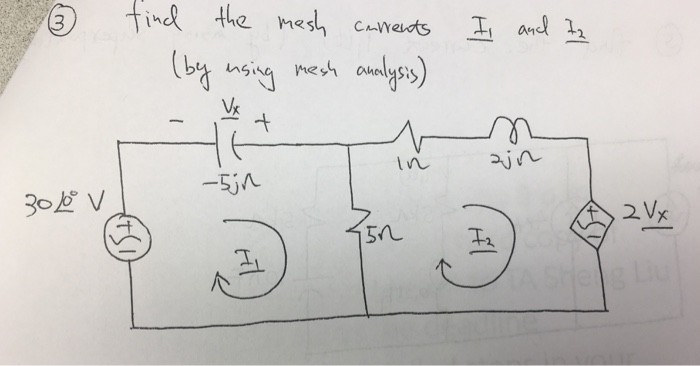 ③ find the mesh currents I₁ and I₂
(by using mesh analysis)
- Vx +
-5jΩ
1Ω
2jΩ
30∠0° V
+
-
I₁
5Ω
I₂
+
-
2Vx
(TA Sheng Liu